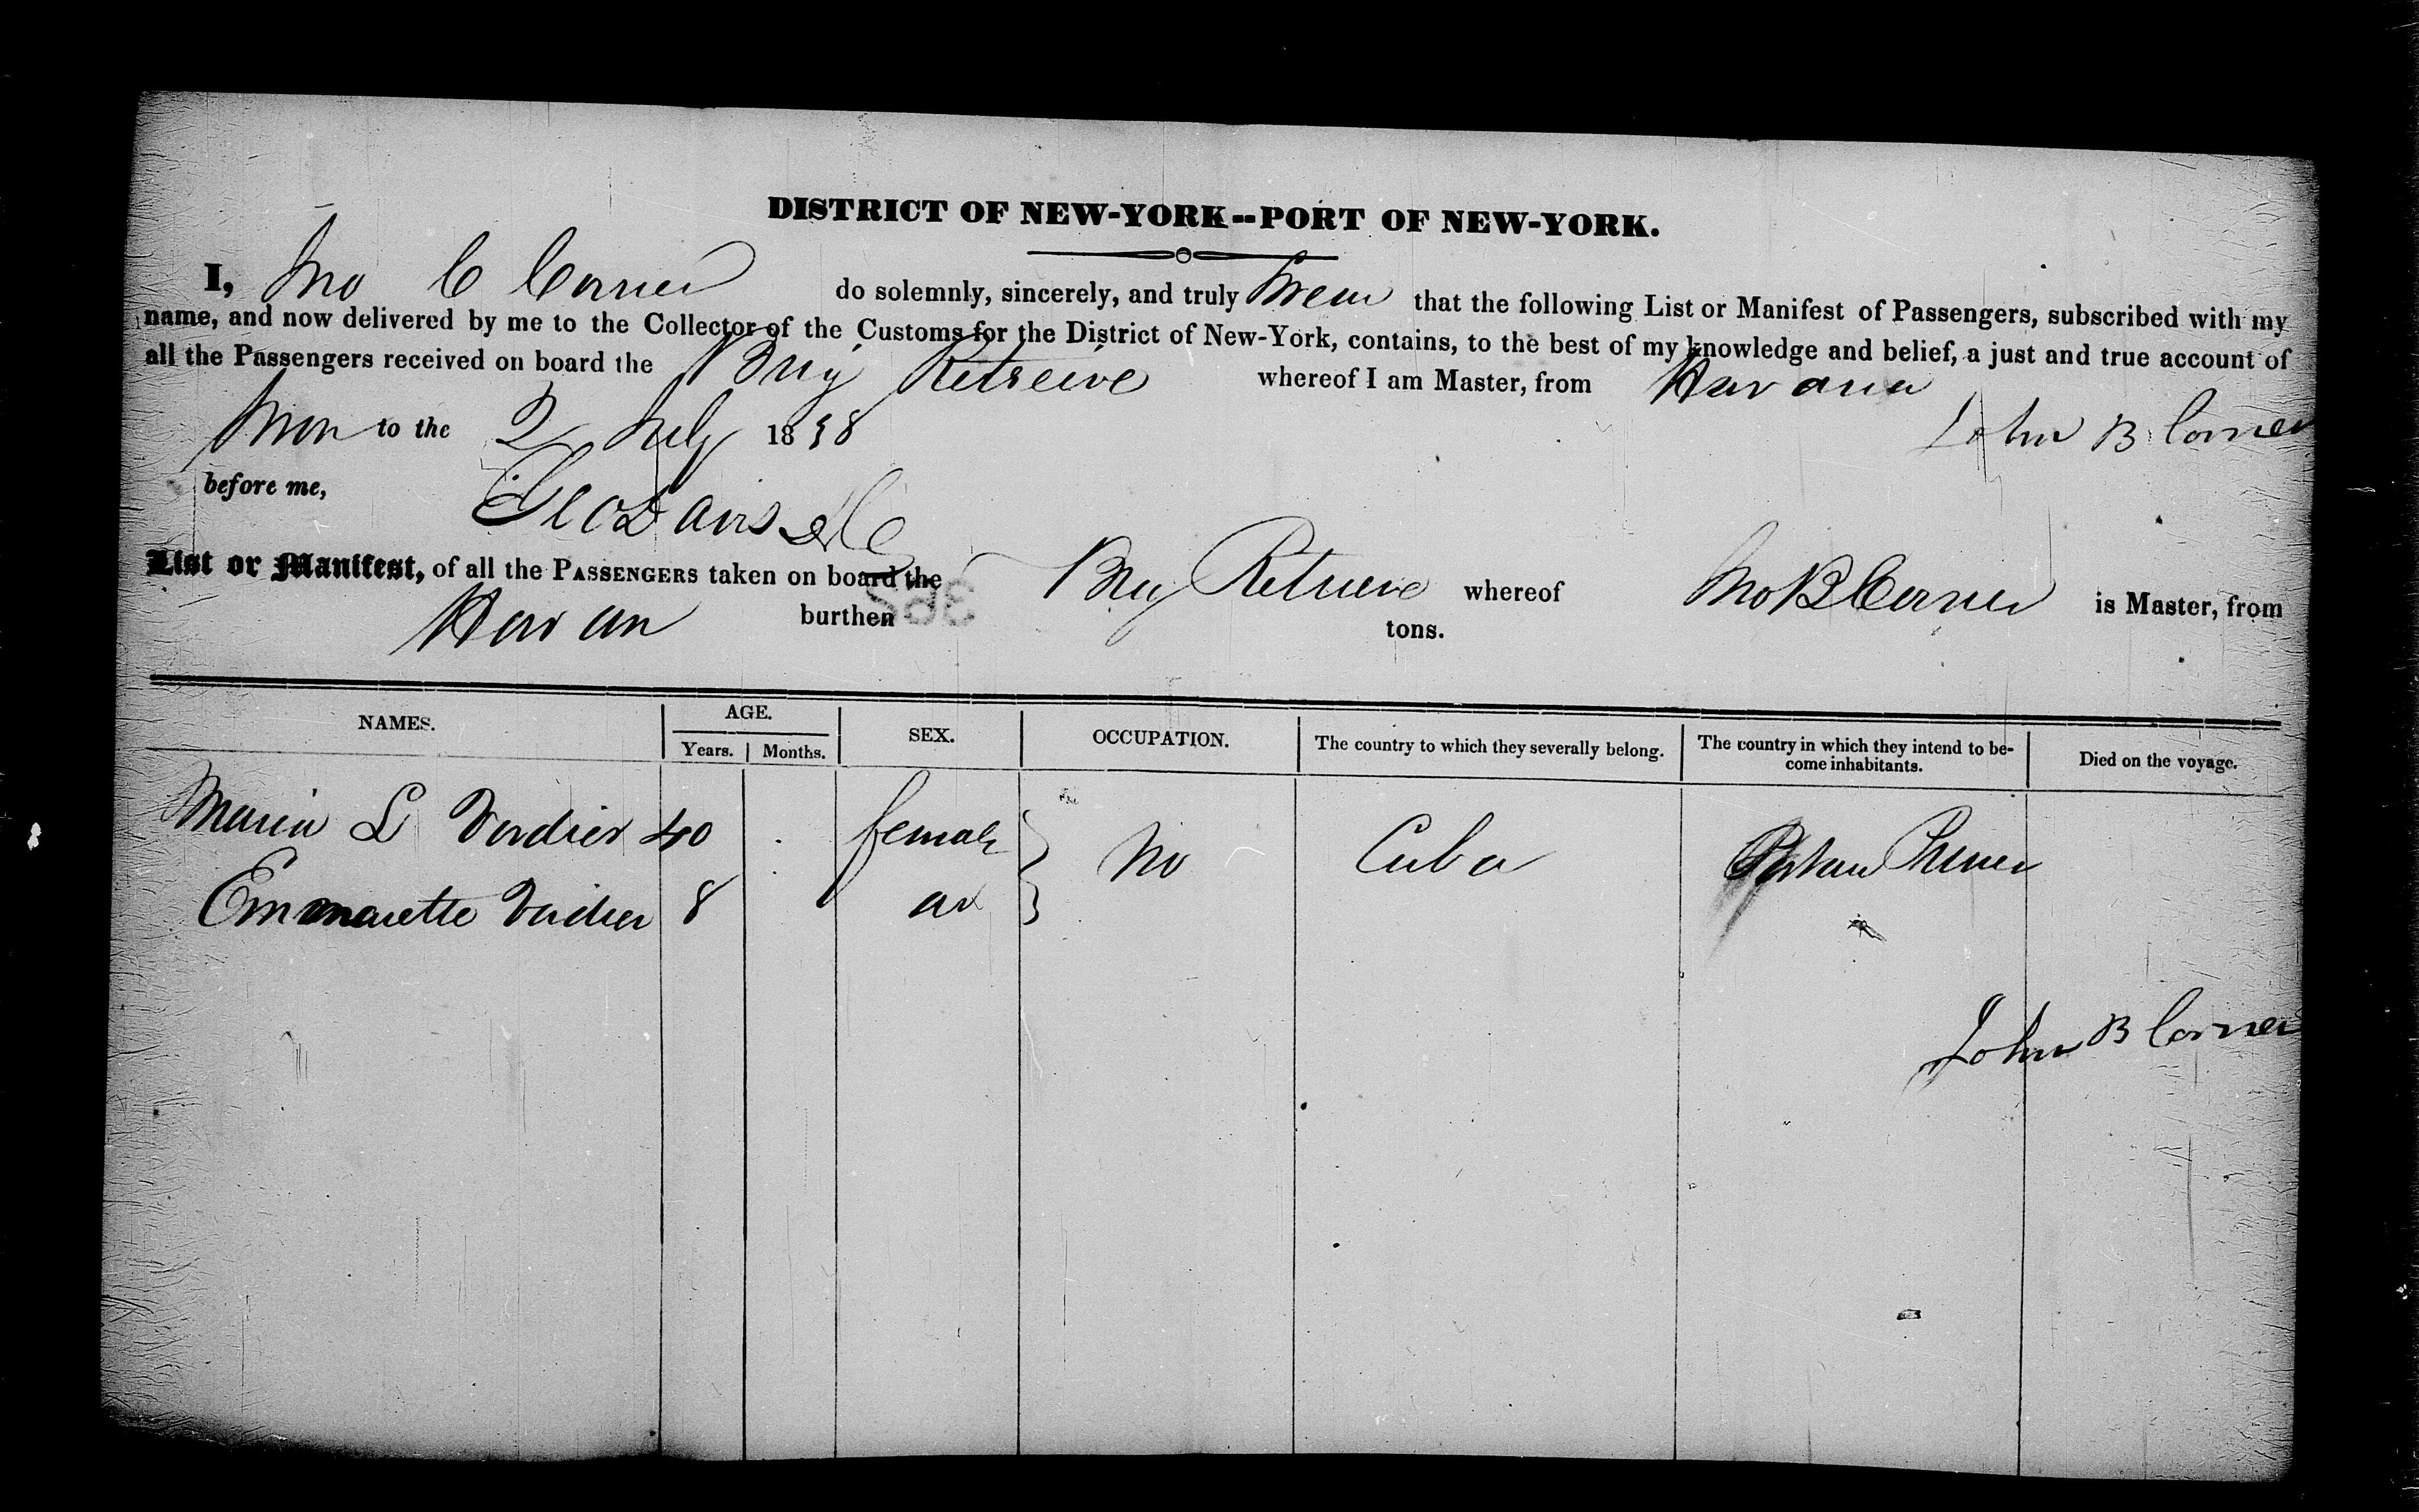 DISTRICT OF NEW-YORK--PORT OF NEW-YORK.
I, Jno C Corner do solemnly, sincerely, and truly Swear that the following List or Manifest of Passengers, subscribed with my
name, and now delivered by me to the Collector of the Customs for the District of New-York, contains, to the best of my knowledge and belief, a just and true account of
all the Passengers received on board the Brig Retreive whereof I am Master, from Havana
Sworn to the 2 July 1838 John B Corner
before me, Geo Davis
List or Manifest, of all the PASSENGERS taken on board the Brig Retrieve whereof Jno B Corner is Master, from
Havan burthen tons.
362
NAMES. AGE. SEX. OCCUPATION. The country to which they severally belong. The country in which they intend to be-come inhabitants. Died on the voyage.
Years. Months.
Maria L Verdier 40 female No Cuba
Emmarette Verdier 8
John B Corner